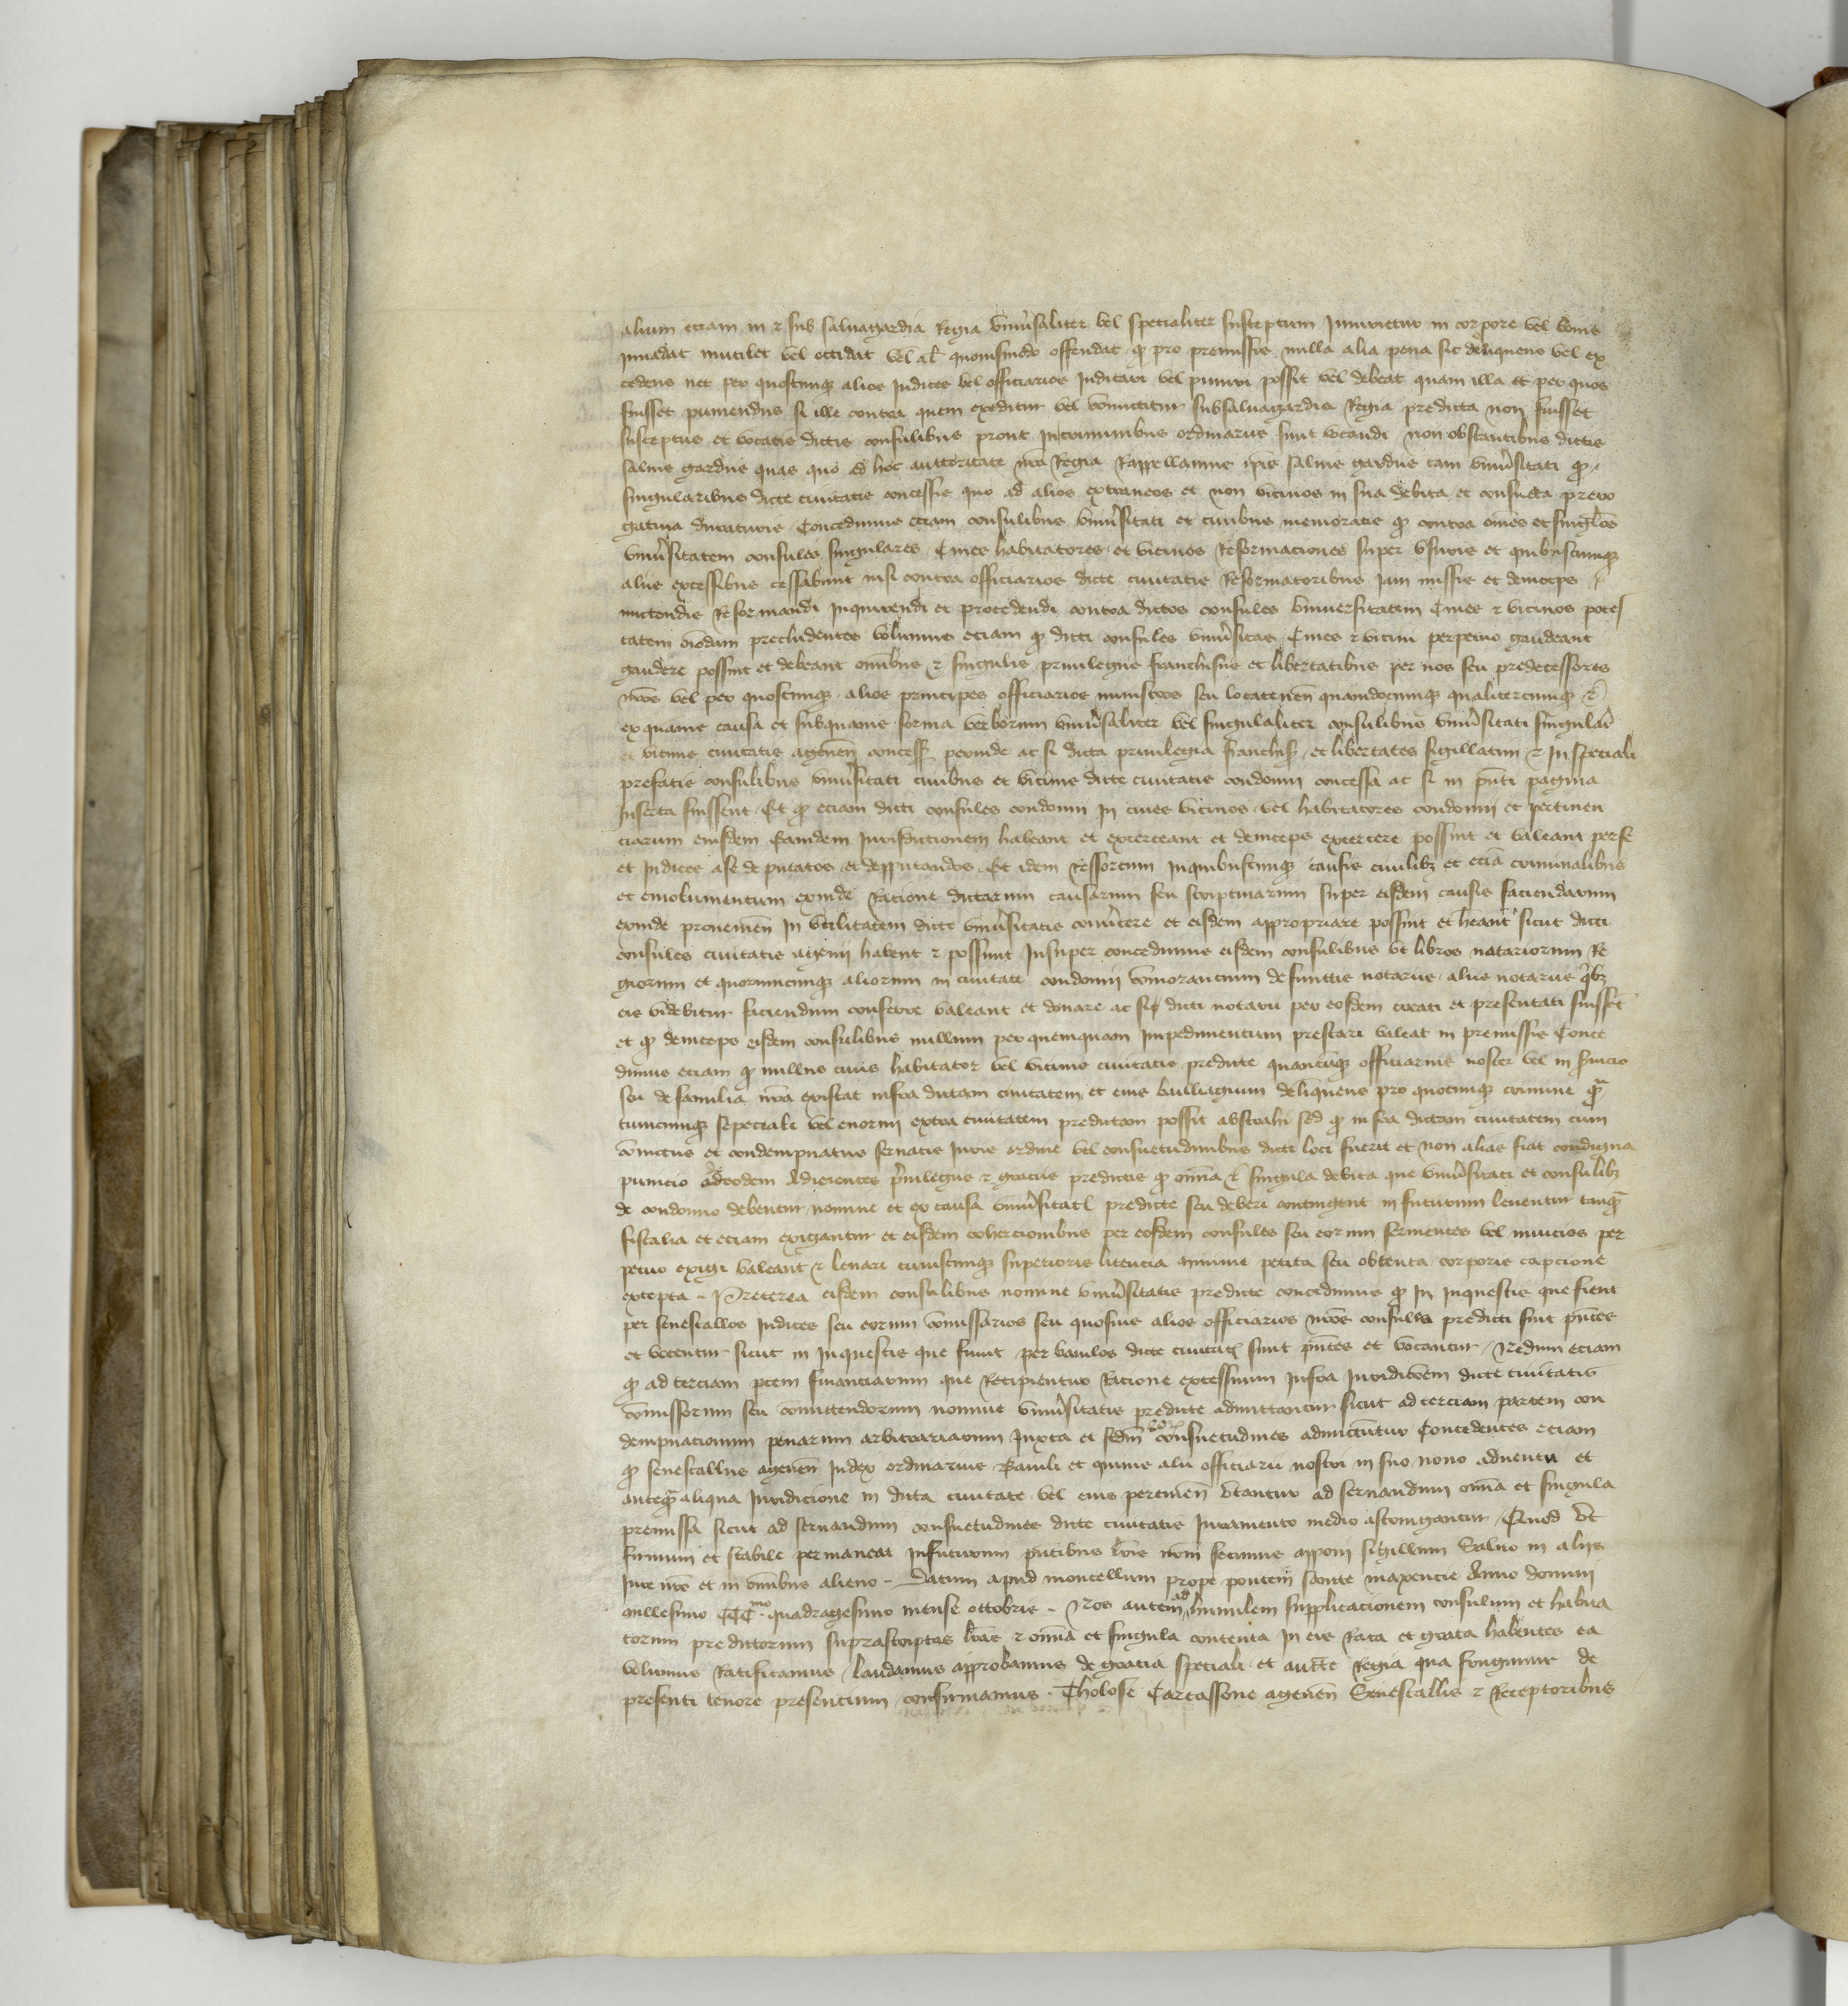 alium etiam in ⁊ sub saluagardia Regia vniu͛saliter vel specialiter susceptum Iniurietur in corpore vel bonis
Inuadat mutilet vel occidat vel al̃ quouismodo offendat ꝙ pro premissis nulla alia pena sic deliquens vel ex
cedens nec per quoscunqꝫ alios Iudices vel officiarios Iudicari vel puniri possit vel debeat quam illa et per quos
fuisset puniendus si ille contra quem exceditur vel com̃ictitur sub saluagardia Regia predicta non fuisset
susceptus et vocatis dictis consulibus prout In criminibus ordinarus sunt vocandi non obstantibus dictis
saluis gardiis quas quo ad hoc auctoritate nr̃a Regia Rappellamus ip̃is saluis gardiis tam vniu͛sitati ꝙ
singularibus dicte ciuitatis concessis quo ad alios extraneos et non vicinos in sua debita et consueta prero
gatiua duraturis Concedimus etiam consulibus vniu͛sitati et ciuibus memoratis ꝙ contra om̃es et singl̃os
vniu͛sitatem consules singulares Ciues habitatores et vicinos Reformaciones super vsuris et quibuscunqꝫ
aliis excessibus cessabunt nisi contra officiarios dicte ciuitatis Reformatoribus iam missis et deinceps
mictendis Reformandi Inquirendi et procedendi contra dictos consules vniuersitatem Ciues ⁊ vicinos potes
tatem oĩodam precludentes volumus etiam ꝙ dicti consules vniu͛sitas Ciues ⁊ vicini perpetuo gaudeant
gaudere possint et debeant om̃ibus ⁊ singulis priuilegiis franchisiis et libertatibus per nos seu predecessores
nr̃os vel per quoscunqꝫ alios principes officiarios ministros seu locatenen̄ quandocunqꝫ qualitercunqꝫ ⁊
ex quauis causa et sub quauis forma verborum vniu͛saliter vel singulaliter consulibus vniu͛sitati singular̃
et vicinis ciuitatis agenen̄ concess̃ perinde ac si dicta priuilegia franchis̃ et libertates sigillatim ⁊ In speciali
prefatis consulibus vniu͛sitati ciuibus et vicinis dicte ciuitatis condomii concessa ac si in pñti pagina
Inserta fuissent Et ꝙ etiam dicti consules condomii In ciues vicinos vel habitatores condomii et pertinen
ciarum eiusdem Eamdem Iurisdictionem habeant et exerceant et deinceps exercere possint et valeant per se
et Iudices a se deputatos et depputandos Et idem ressortum In quibuscunqꝫ causis ciuilibꝫ et etiã criminalibus
et emolumentum exinde Ratione dictarum causarum seu scripturarum super eisdem causis faciendarum
exinde prouenien̄ In vtilitatem dicte vniu͛sitatis conu͛tere et eisdem appropriare possint et h̃eant sicut dicti
consules ciuitatis agenii habent ⁊ possunt Insuper concedimus eisdem consulibus vt libros notariorum Re
giorum et quorumcunqꝫ aliorum in ciuitate condomii com̃orantium defunctis notariis aliis notariis q̃ibꝫ
eis videbitur faciendum conferre valeant et donare ac si dicti notarii per eosdem creati et presentati fuisset̃
et ꝙ deinceps eisdem consulibus nullum per quemquam Impedimentum prestari valeat in premissis Conce
dimus etiam ꝙ nullus ciuis habitator vel vicinus ciuitatis predicte quantũqꝫ officiarius noster vel in s͛uicio
seu de familia nr̃a existat infra dictam ciuitatem et eius bailliagium deliquens pro quocunqꝫ crimine q̃ꝫ
tumcunqꝫ sepeciali vel enormi extra ciuitatem predictam possit abstrahi sed ꝙ infra dictam ciuitatem cum
conuictus et condempnatus seruatis Iuris ordine vel consuetudinibus dicti loci fuerit et non alias fiat condigna
punicio de eodem Adicientes p͛uilegiis ⁊ graciis predictis ꝙ om̃ia ⁊ singula debita que vniu͛sitati et consulibꝫ
de condomio debentur nomine et ex causa vniu͛sitatꝭ predicte seu deberi contingent in futurum leuentur tanq̃ꝫ
fiscalia et etiam exigantur et eisdem cohercionibus per eosdem consules seu eorum seruientes vel nuncios per
petuo exigi valeant ⁊ leuari cuiuscunqꝫ superioris licencia minime petita seu obtenta corporis capcione
excepta - Preterea eisdem consulibus nomine vniu͛sitatis predicte concedimus ꝙ In Inquestis que fient
per senescallos Iudices seu eorum com̃issarios seu quosuis alios officiarios nr̃os consules predicti sint pñtes
et vocentur sicut in Inquestis que fiunt per baiulos dicte ciuitatꝭ sunt pñtes et vocantur Necdum etiam
ꝙ ad terciam p̃tem financiarum que Recipientur Racione excessuum Infra Iuridic̃oem dicte ciuitatis
com̃issorum seu com̃ictendorum nomine vniu͛sitatis predicte admittantur sicut ad terciam partem con
dempnacionum penarum arbitrariarum Iuxta et sedm̃ consuetudines admictũtur Concedentes etiam
ꝙ senescallus agenen̄ Iudex ordinarius Baiuli et quiuis alii officiarii nostri in suo nouo aduentu et
anteq̃ꝫ aliqua Iuridicione in dicta ciuitate vel eius pertinen̄ vtantur ad seruandum om̃ia et singula
premissa sicut ad seruandum consuetudines dicte ciuitatis Iuramento medio astringantur Quod vt
firmum et stabile permaneat In futurum pñtibus lr̃is nr̃m fecimus apponi sigillum Saluo in aliis
Iure nr̃o et in om̃ibus alieno - Datum apud moncellum prope pontem sancte maxencie Anno domini
millesimo CCC^mo quadragesimo mense octobris - Nos autem ad humilem supplicacionem consulum et habita
torum predictorum suprascriptas lr̃as ⁊ om̃ia et singula contenta In eis Rata et grata habentes ea
volumus Ratificamus laudamus approbamus de gracia speciali et auct̃te Regia qua fungimur de
presenti tenore presentium confirmamus. Tholose Carcassone agenen̄ Senescallis ⁊ Receptoribus